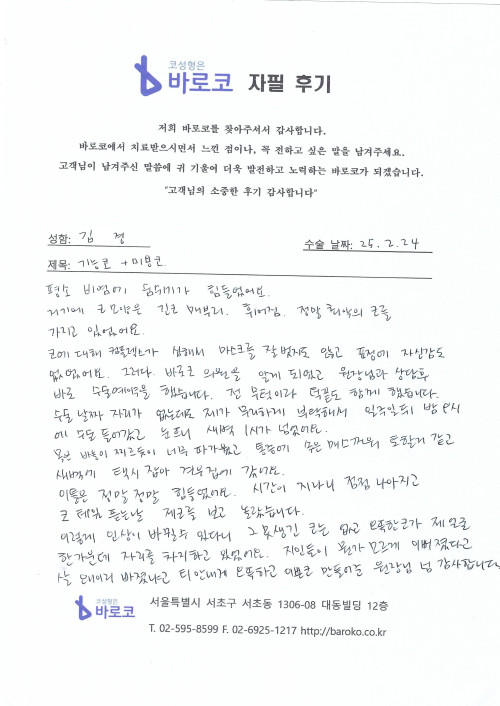 코성형은
바로코 자필 후기
저희 바로코를 찾아주셔서 감사합니다.
바로코에서 치료받으시면서 느낀 점이나, 꼭 전하고 싶은 말을 남겨주세요.
고객님이 남겨주신 말씀에 귀 기울여 더욱 발전하고 노력하는 바로코가 되겠습니다.
"고객님의 소중한 후기 감사합니다"
성함: 김 정
수술 날짜: 25. 2. 24
제목: 기능코 + 미용코
평소 비염에 숨쉬기가 힘들었어요.
거기에 코모양은 긴코 매부리. 휘어짐. 정말 최악의 코를
가지고 있었어요.
코에 대해 컴플렉스가 심해서 마스크를 잘 벗지도 않고 표정에 자신감도
없었어요. 그러다. 바로코 의원을 알게 되었고 원장님과 상담후
바로 수술예약을 했습니다. 전 무턱이라 턱끝도 함께 했습니다.
수술 날짜 자리가 없는데도 제가 무리하게 부탁해서 일주일뒤 밤 9시
에 수술 들어갔고 눈뜨니 새벽 1시가 넘었어요.
목은 바늘이 찌르듯이 너무 따가웠고 메스꺼워 토할거 같고
새벽에 택시 잡아 겨우 집에 갔어요.
이틀은 정말 정말 힘들었어요. 시간이 지나니 점점 나아지고
코 테잎 뜯는날 제코를 보고 놀랐습니다.
이렇게 인상이 바뀔수 있다니 그 못생긴 코는 없고 오똑한코가 제 얼굴
한가운데 자리를 차지하고 있었어요. 지인들이 뭔가 모르게 이뻐졌다고
살 빠졌냐고 티안나게 오똑하고 이쁜코 만들어준 원장님 넘 감사합니다.
코성형은
바로코
서울특별시 서초구 서초동 1306-08 대동빌딩 12층
T. 02-595-8599 F. 02-6925-1217 http://baroko.co.kr